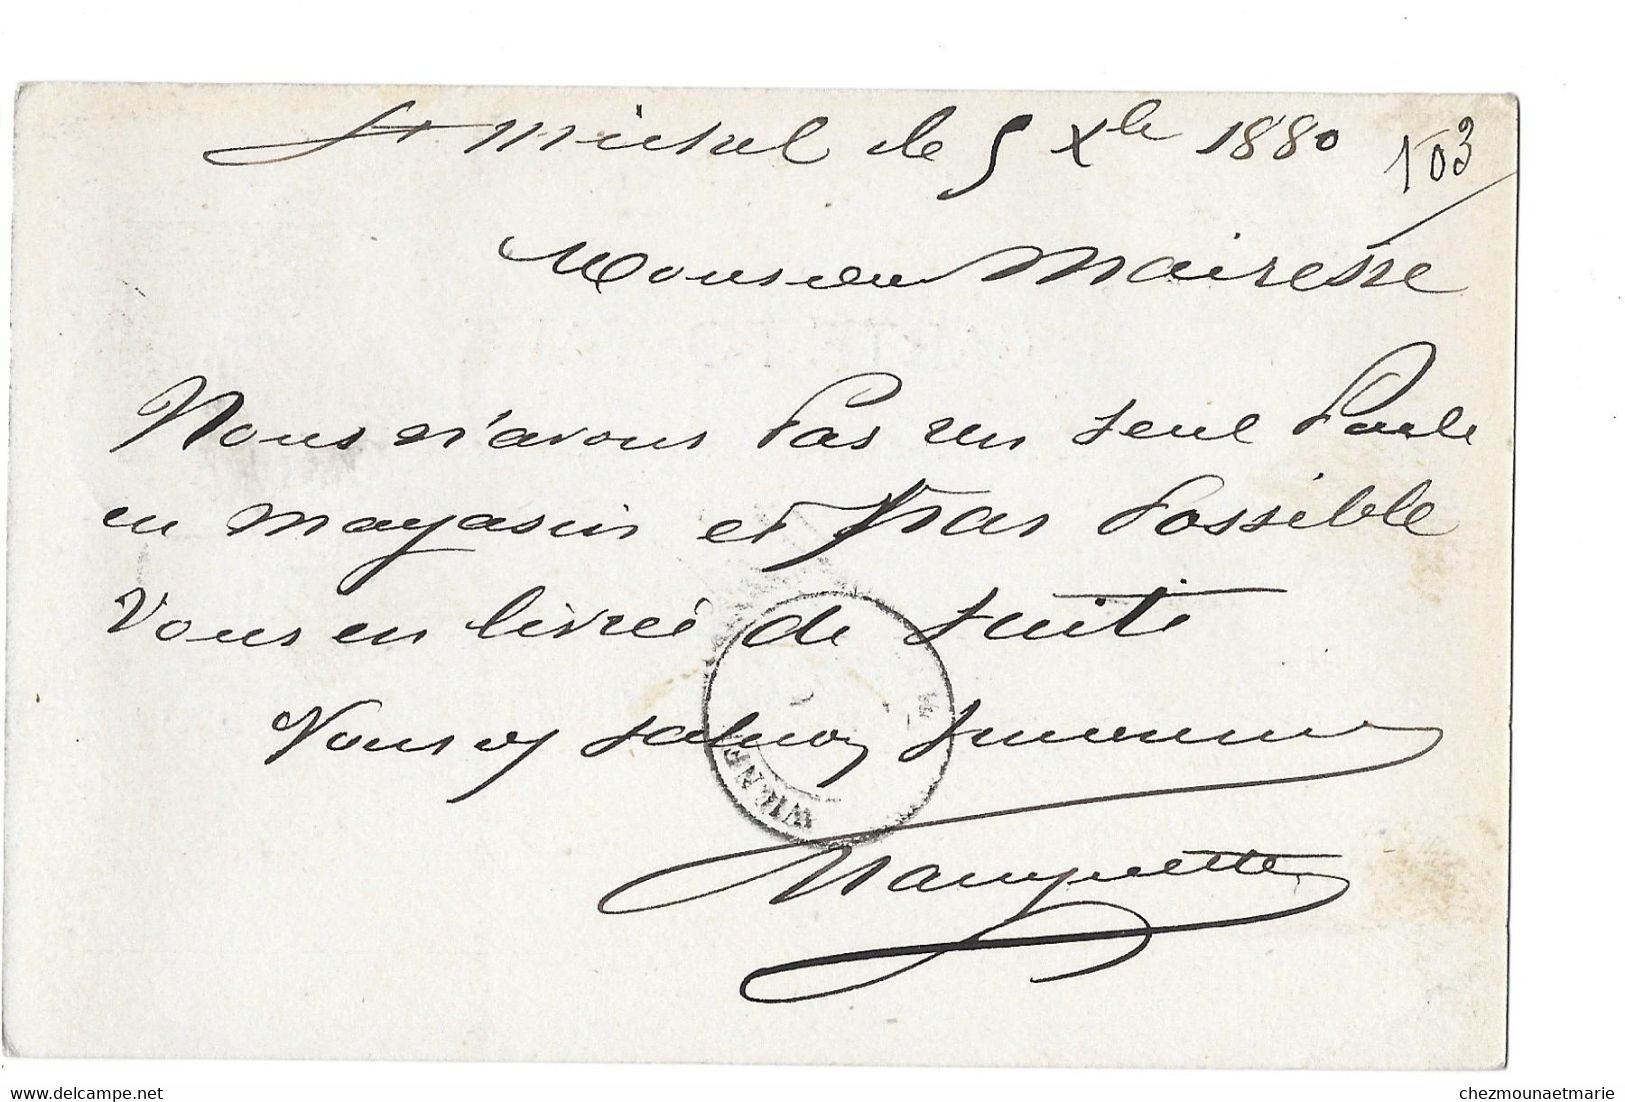 St Michel le 5 Xbre 1880
103
Monsieur Mairesse
Nous n'avons Pas un seul Poele
en magasin et Pas Possible
Vous en livrée de suite
Vous
WIGNE
Mauguette
chezmounaetmarie